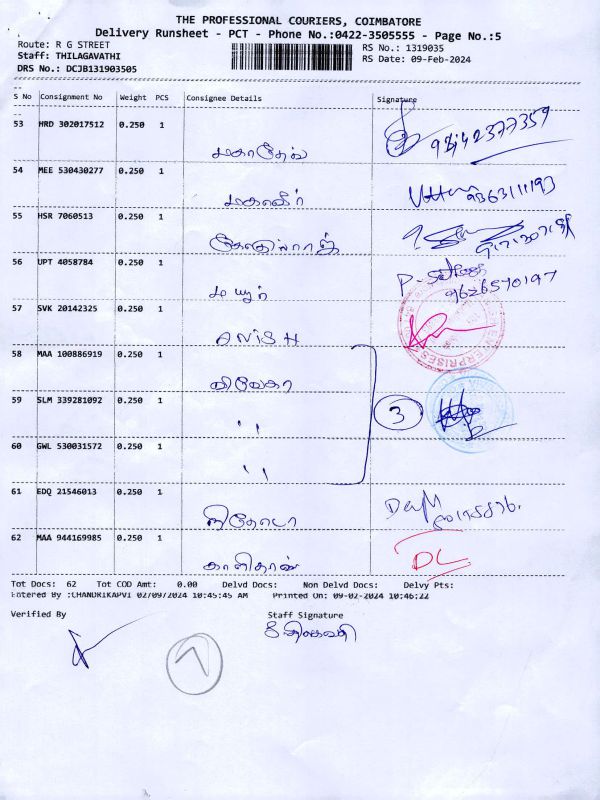 THE PROFESSIONAL COURIERS, COIMBATORE
Delivery Runsheet - PCT - Phone No.:0422-3505555 - Page No.:5
Route: R G STREET RS No.: 1319035
Staff: THILAGAVATHI RS Date: 09-Feb-2024
DRS No.: DCJB131903505
S No Consignment No Weight PCS Consignee Details Signature
53 HRD 302017512 0.250 1
மகாதேவ்
54 MEE 530430277 0.250 1
மகாவீர் 9363111193
55 HSR 7060513 0.250 1
56 UPT 4058784 0.250 1
மயூர் 9626570197
57 SVK 20142325 0.250 1
ANiSH
58 MAA 100886919 0.250 1
59 SLM 339281092 0.250 1
" 3
60 GWL 530031572 0.250 1
"
61 EDQ 21546013 0.250 1
62 MAA 944169985 0.250 1
காளிதாஸ் DL
Tot Docs: 62 Tot COD Amt: 0.00 Delvd Docs: Non Delvd Docs: Delvy Pts:
Entered By :CHANDRIKAPVI 02/09/2024 10:45:45 AM Printed On: 09-02-2024 10:46:22
Verified By Staff Signature